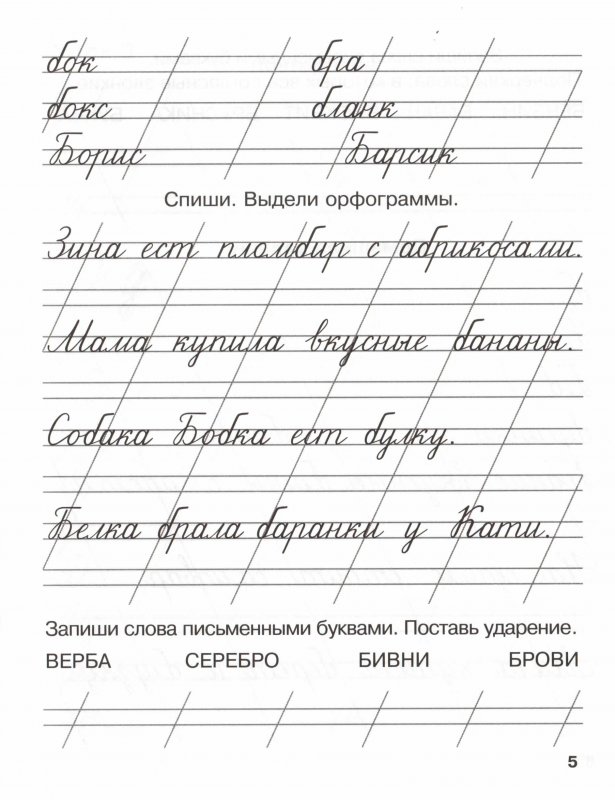 бок бра
бокс бланк
Борис Барсик
Спиши. Выдели орфограммы.
Зина ест пломбир с абрикосами.
Мама купила вкусные бананы.
Собака Бобка ест булку.
Белка брала баранки у Кати.
Запиши слова письменными буквами. Поставь ударение.
ВЕРБА СЕРЕБРО БИВНИ БРОВИ
5